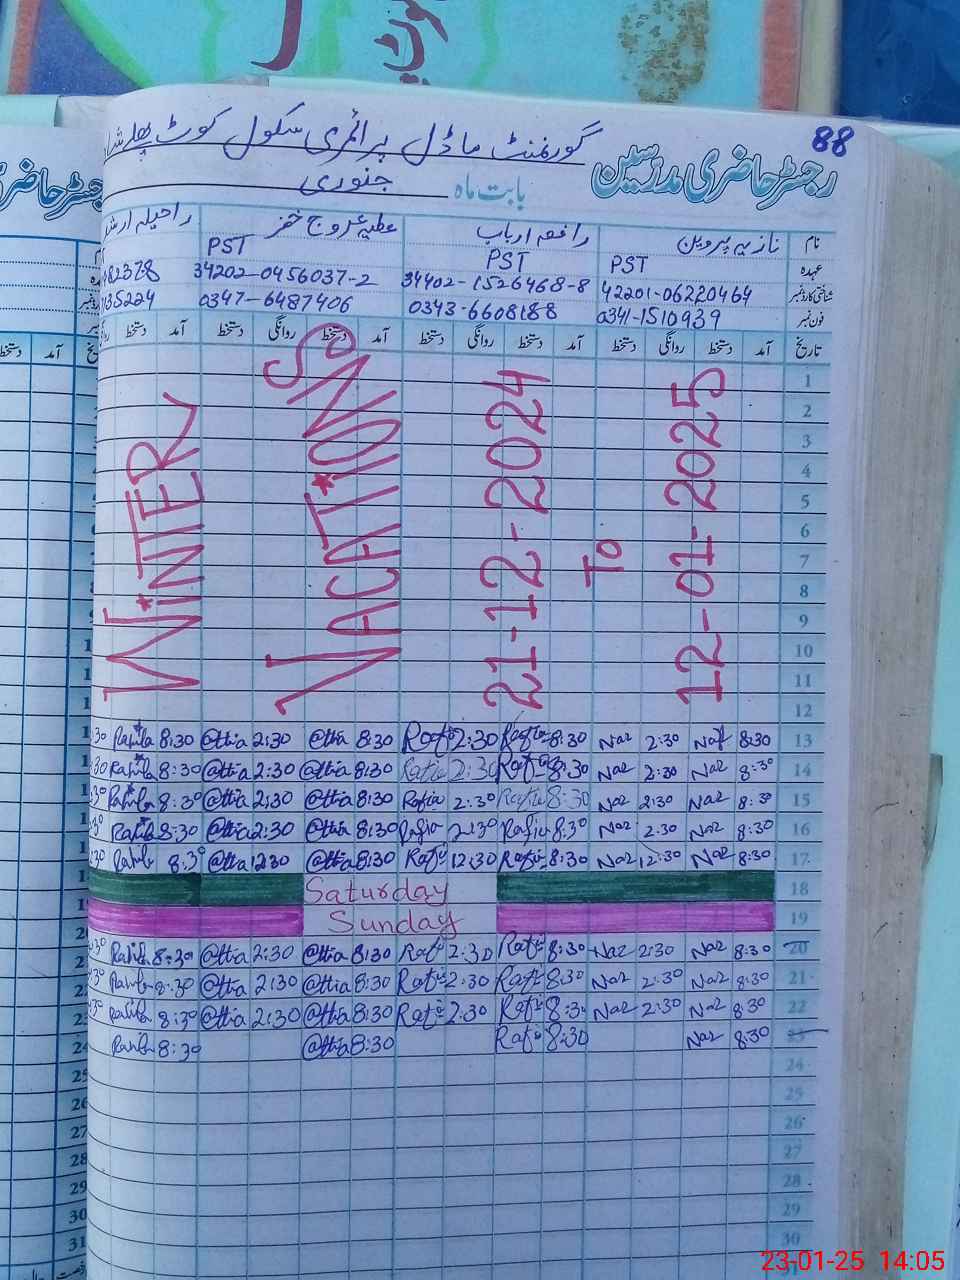 88
رجسٹر حاضری مدرسین
گورنمنٹ ماڈل پرائمری سکول کوٹ
بابت ماہ جنوری
نام نازیہ پروین رافعہ ارباب عطیہ عروج خضر راحیلہ
عہدہ PST PST PST
شناختی کارڈ نمبر 42201-06220464 34402-1526468-8 34202-0456037-2 482378
فون نمبر 0341-1510939 0343-6608188 0347-6487406 135224
تاریخ آمد دستخط روانگی دستخط آمد دستخط روانگی دستخط آمد دستخط روانگی دستخط آمد دستخط
1
2
3
4
5
6
7
8
9
10
11
12
WINTER
VACATIONS
21-12-2024
To
12-01-2025
:30 Rahila 8:30 @ttia 2:30 @ttia 8:30 Rafia 2:30 Rafia 8:30 Naz 2:30 Naz 8:30 13
:30 Rahila 8:30 @ttia 2:30 @ttia 8:30 Rafia 2:30 Rafia 8:30 Naz 2:30 Naz 8:30 14
:30 Rahila 8:30 @ttia 2:30 @ttia 8:30 Rafia 2:30 Rafia 8:30 Naz 2:30 Naz 8:30 15
:30 Rahila 8:30 @ttia 2:30 @ttia 8:30 Rafia 2:30 Rafia 8:30 Naz 2:30 Naz 8:30 16
:30 Rahila 8:30 @ttia 12:30 @ttia 8:30 Rafia 12:30 Rafia 8:30 Naz 12:30 Naz 8:30 17
Saturday 18
Sunday 19
:30 Rahila 8:30 @ttia 2:30 @ttia 8:30 Rafia 2:30 Rafia 8:30 Naz 2:30 Naz 8:30 20
:30 Rahila 8:30 @ttia 2:30 @ttia 8:30 Rafia 2:30 Rafia 8:30 Naz 2:30 Naz 8:30 21
:30 Rahila 8:30 @ttia 2:30 @ttia 8:30 Rafia 2:30 Rafia 8:30 Naz 2:30 Naz 8:30 22
Rahila 8:30 @ttia 8:30 Rafia 8:30 Naz 8:30 23
24
25
26
27
28
29
30
31
23-01-25 14:05